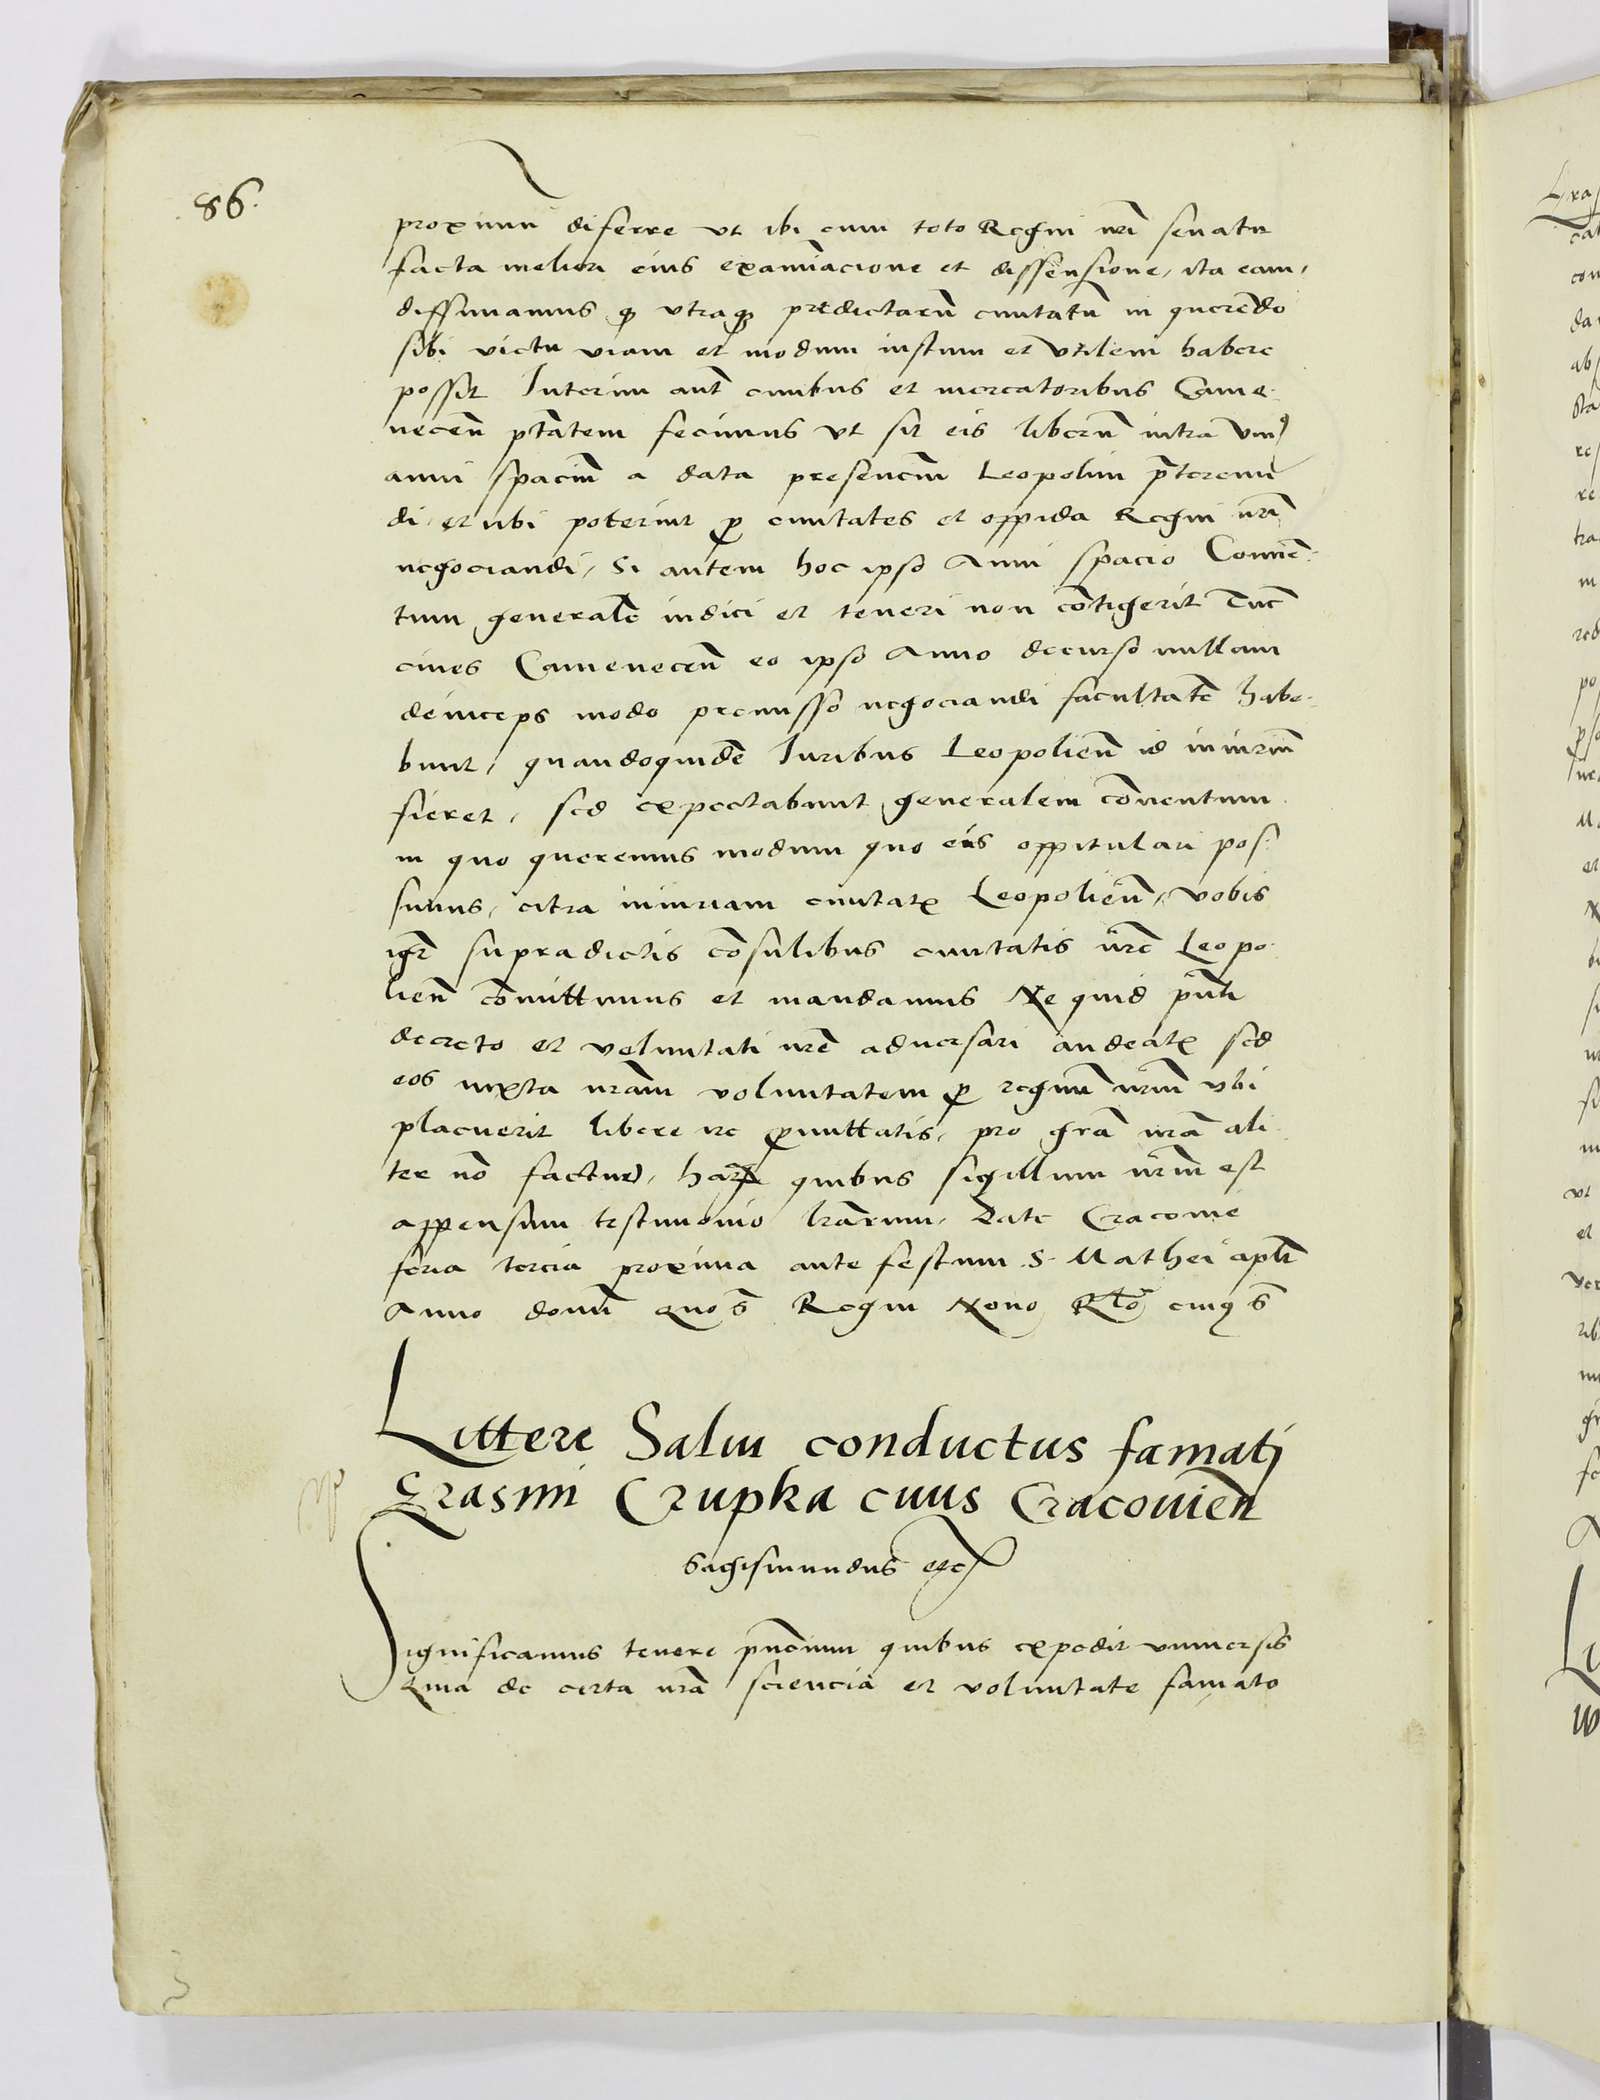 86.
proximum diferre ut ibi cum toto Regni nrĩ senatu
facta meliori eius examinacione et dissensione, ita eam,
diffiniamus qꝫ utraqꝫ predictarũ civitatũ in querẽdo
sibi victu viam et modum iustum et utilem habere
possit Interim aut̃ civibus et mercatoribus Came-
neceñ ptãtem fecimus ut sit eis liberũ intra vniꝰ
anni spaciũ a data presenciũ Leopolim p̃tereun
di, et ubi poterint ꝑ civitates et oppida Regni nrĩ
negociandi, Si autem hoc ipso anni spacio Conuẽ-
tum generalẽ indici et teneri non cõtigerit Tũc
cives Cameneceñ eo ipso Anno decurso nullam
deinceps modo premisso negociandi facultatẽ habe-
bunt, quandoquidẽ Iuribus Leopolieñ id iniuriũ
fieret, sed expectabunt generalem cõventum
in quo queremus modum quo eis oppitulari pos-
sumus, citra iniuriam civitatꝭ Leopolieñ, vobis
igr̃ supradictis cõsulibus civitatis nrẽ Leopo-
lieñ cõmittimus et mandamus Ne quid pñti
decreto et voluntati nrẽ adversari audeatꝭ sed
eos iuxta nrãm voluntatem ꝑ regnũ nrũm vbi
placuerit libere ire ꝑmittatis, pro grã nrã ali
ter nõ factur), harꝫ quibus sigillum nrũm est
appensum testimonio lrãrum, Date Cracovie
feria tercia proxima ante festum S. Mathei apli̾
Anno domĩ quo s̃ Regni Nono Rtõ eiusq s̃
Littere Salui conductus famati
Erasmi Crupka ciuis Cracovieñ
Sigismundus etc
Significamus tenore pñcium quibus expedit universis
Quia de certa nrã sciencia et voluntate famato